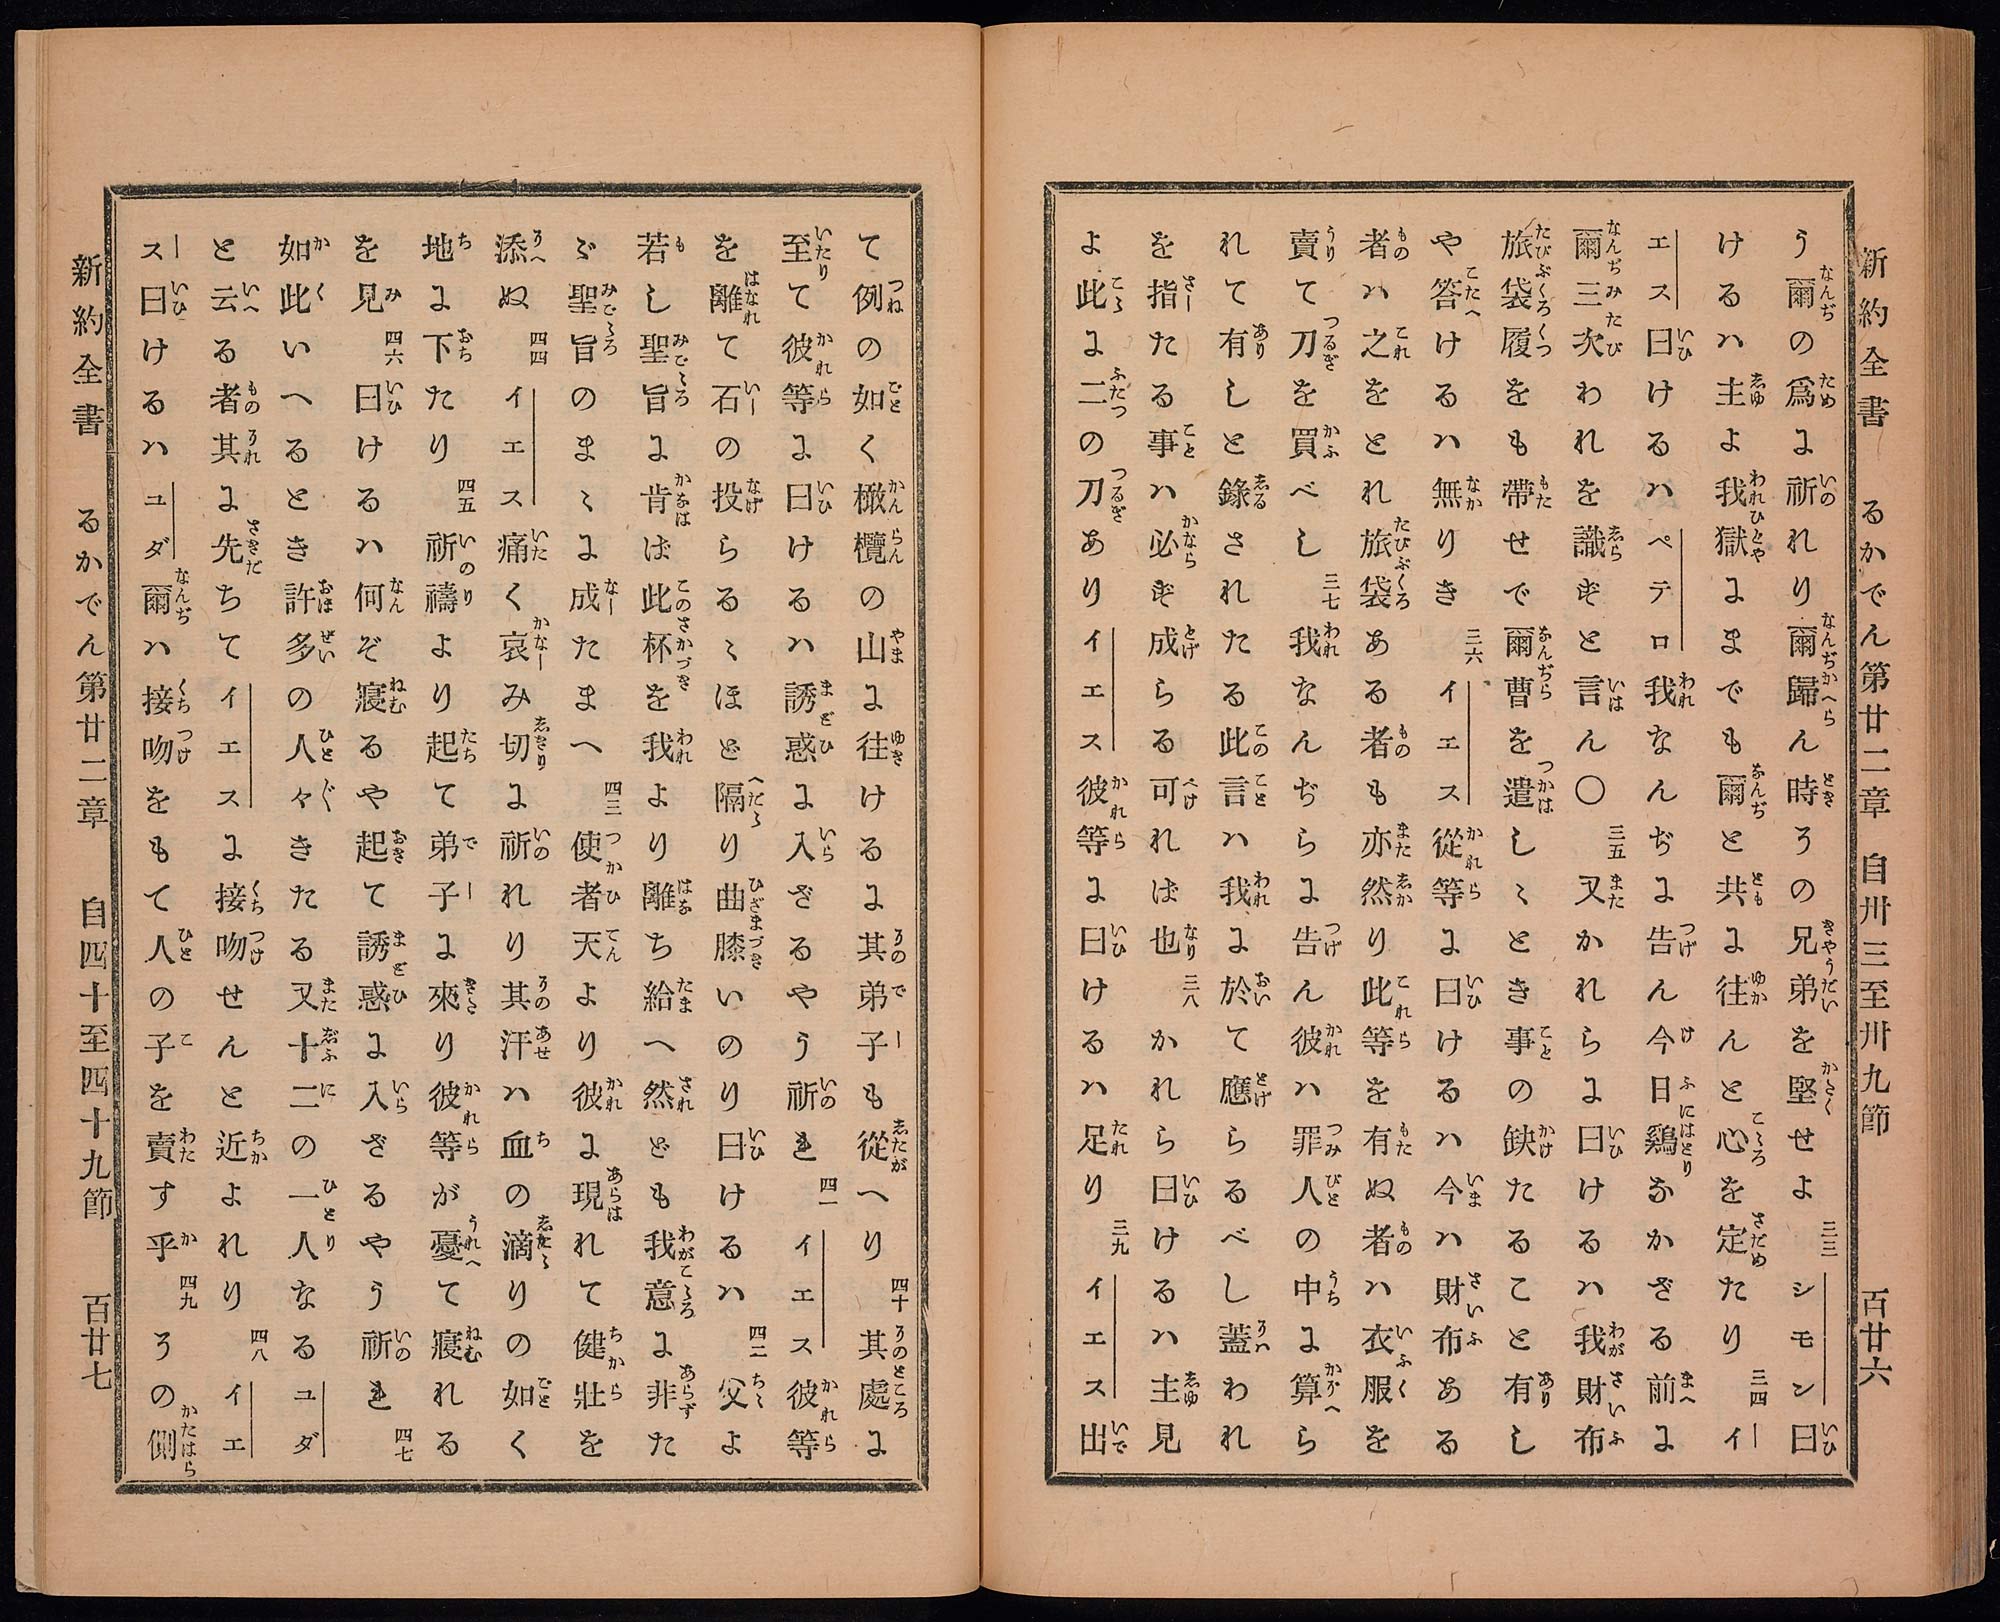 新約全書　るかでん第廿二章　自卅三至卅九節　百廿六
う爾の爲に祈れり爾歸ん時その兄弟を堅せよ三三シモン曰
けるハ主よ我獄にまでも爾と共に往んと心を定たり三四イ
エス曰けるハペテロ我なんぢに告ん今日鷄なかざる前に
爾三次われを識ずと言ん〇三五又かれらに曰けるハ我財布
旅袋履をも帶せで爾曹を遣しゝとき事の缺たること有し
や答けるハ無りき三六イエス從等に曰けるハ今ハ財布ある
者ハ之をとれ旅袋ある者も亦然り此等を有ぬ者ハ衣服を
賣て刀を買べし三七我なんぢらに告ん彼ハ罪人の中に算ら
れて有しと錄されたる此言ハ我に於て應らるべし蓋われ
を指たる事ハ必ず成らる可れば也三八かれら曰けるハ主見
よ此に二の刀ありイエス彼等に曰けるハ足り三九イエス出
て例の如く橄欖の山に往けるに其弟子も從へり四十其處に
至て彼等に曰けるハ誘惑に入ざるやう祈れ四一イエス彼等
を離て石の投らるゝほど隔り曲膝いのり曰けるハ四二父よ
若し聖旨に肯ば此杯を我より離ち給へ然ども我意に非た
ゞ聖旨のまゝに成たまへ四三使者天より彼に現れて健壯を
添ぬ四四イエス痛く哀み切に祈れり其汗ハ血の滴りの如く
地に下たり四五祈禱より起て弟子に來り彼等が憂て寢れる
を見四六曰けるハ何ぞ寢るや起て誘惑に入ざるやう祈れ四七
如此いへるとき許多の人々きたる又十二の一人なるユダ
と云る者其に先ちてイエスに接吻せんと近よれり四八イエ
ス曰けるハユダ爾ハ接吻をもて人の子を賣す乎四九その側
新約全書　るかでん第廿二章　自四十至四十九節　百廿七